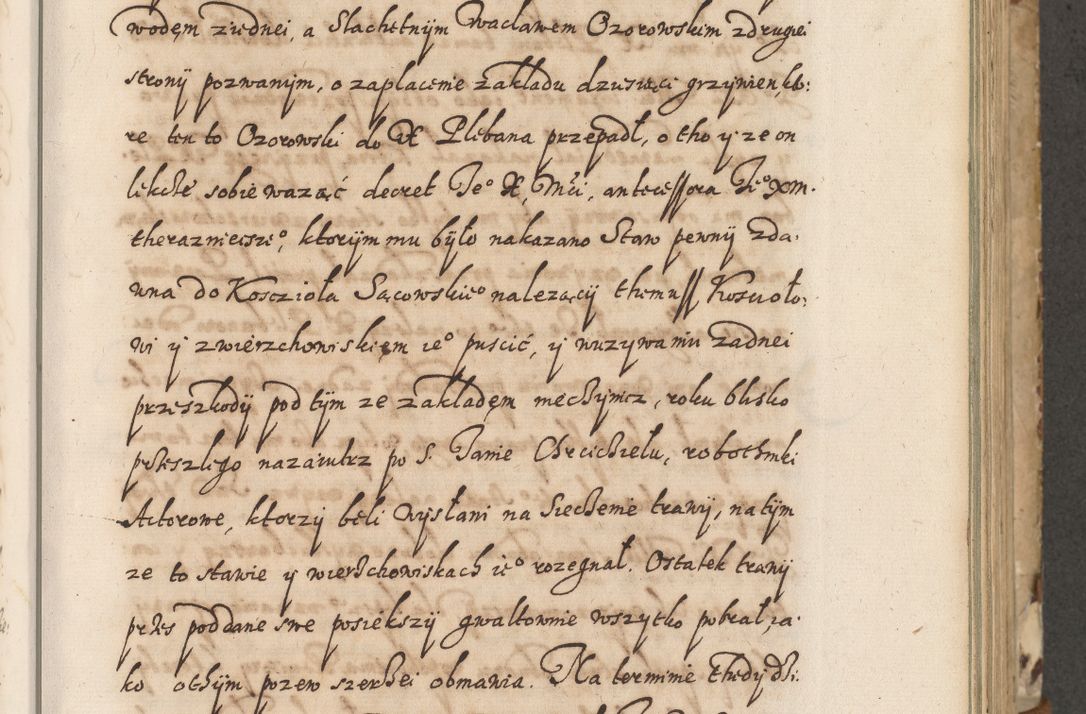 wodęm ziednei, a Slachetnÿm Wacławem Ozorowskim zdrugiei
stronÿ pozwanÿm, o zapłacenie zakładu dziesiąci grzÿwien, kto:
re ten to Ozorowski do X Plebana przepadł, o tho ÿ ze on
lekcze sobie wazać decret Je° X, Mći, antecessora Je° XM.
therazniejsze°, ktorÿm mu bÿło nakazano Staw pewnÿ zda:
wna do Kosczioła Sącowskie° nalezącÿ themuss Koscioło:
wi ÿ zwierzchowiskięm ie° puscić, ÿ wuzÿwaniu zadnei
przeszkodÿ pod tÿm ze zakładęm nieczÿnicz, roku blisko
przeszlego nazaiutrz po S. Janie Chrciczielu, robothniki
Actorowe, ktorzÿ beli wÿsłani na Sieczenie trawÿ, na tÿm
ze to stawie ÿ wierzchowiskach ie° rozegnał. Ostatek trawÿ
przes poddane swe posiekszÿ gwałtownie wszÿtko pobrał, ia:
ko o thÿm pozew szerzei obmawia. Na terminie thedÿ dzi: